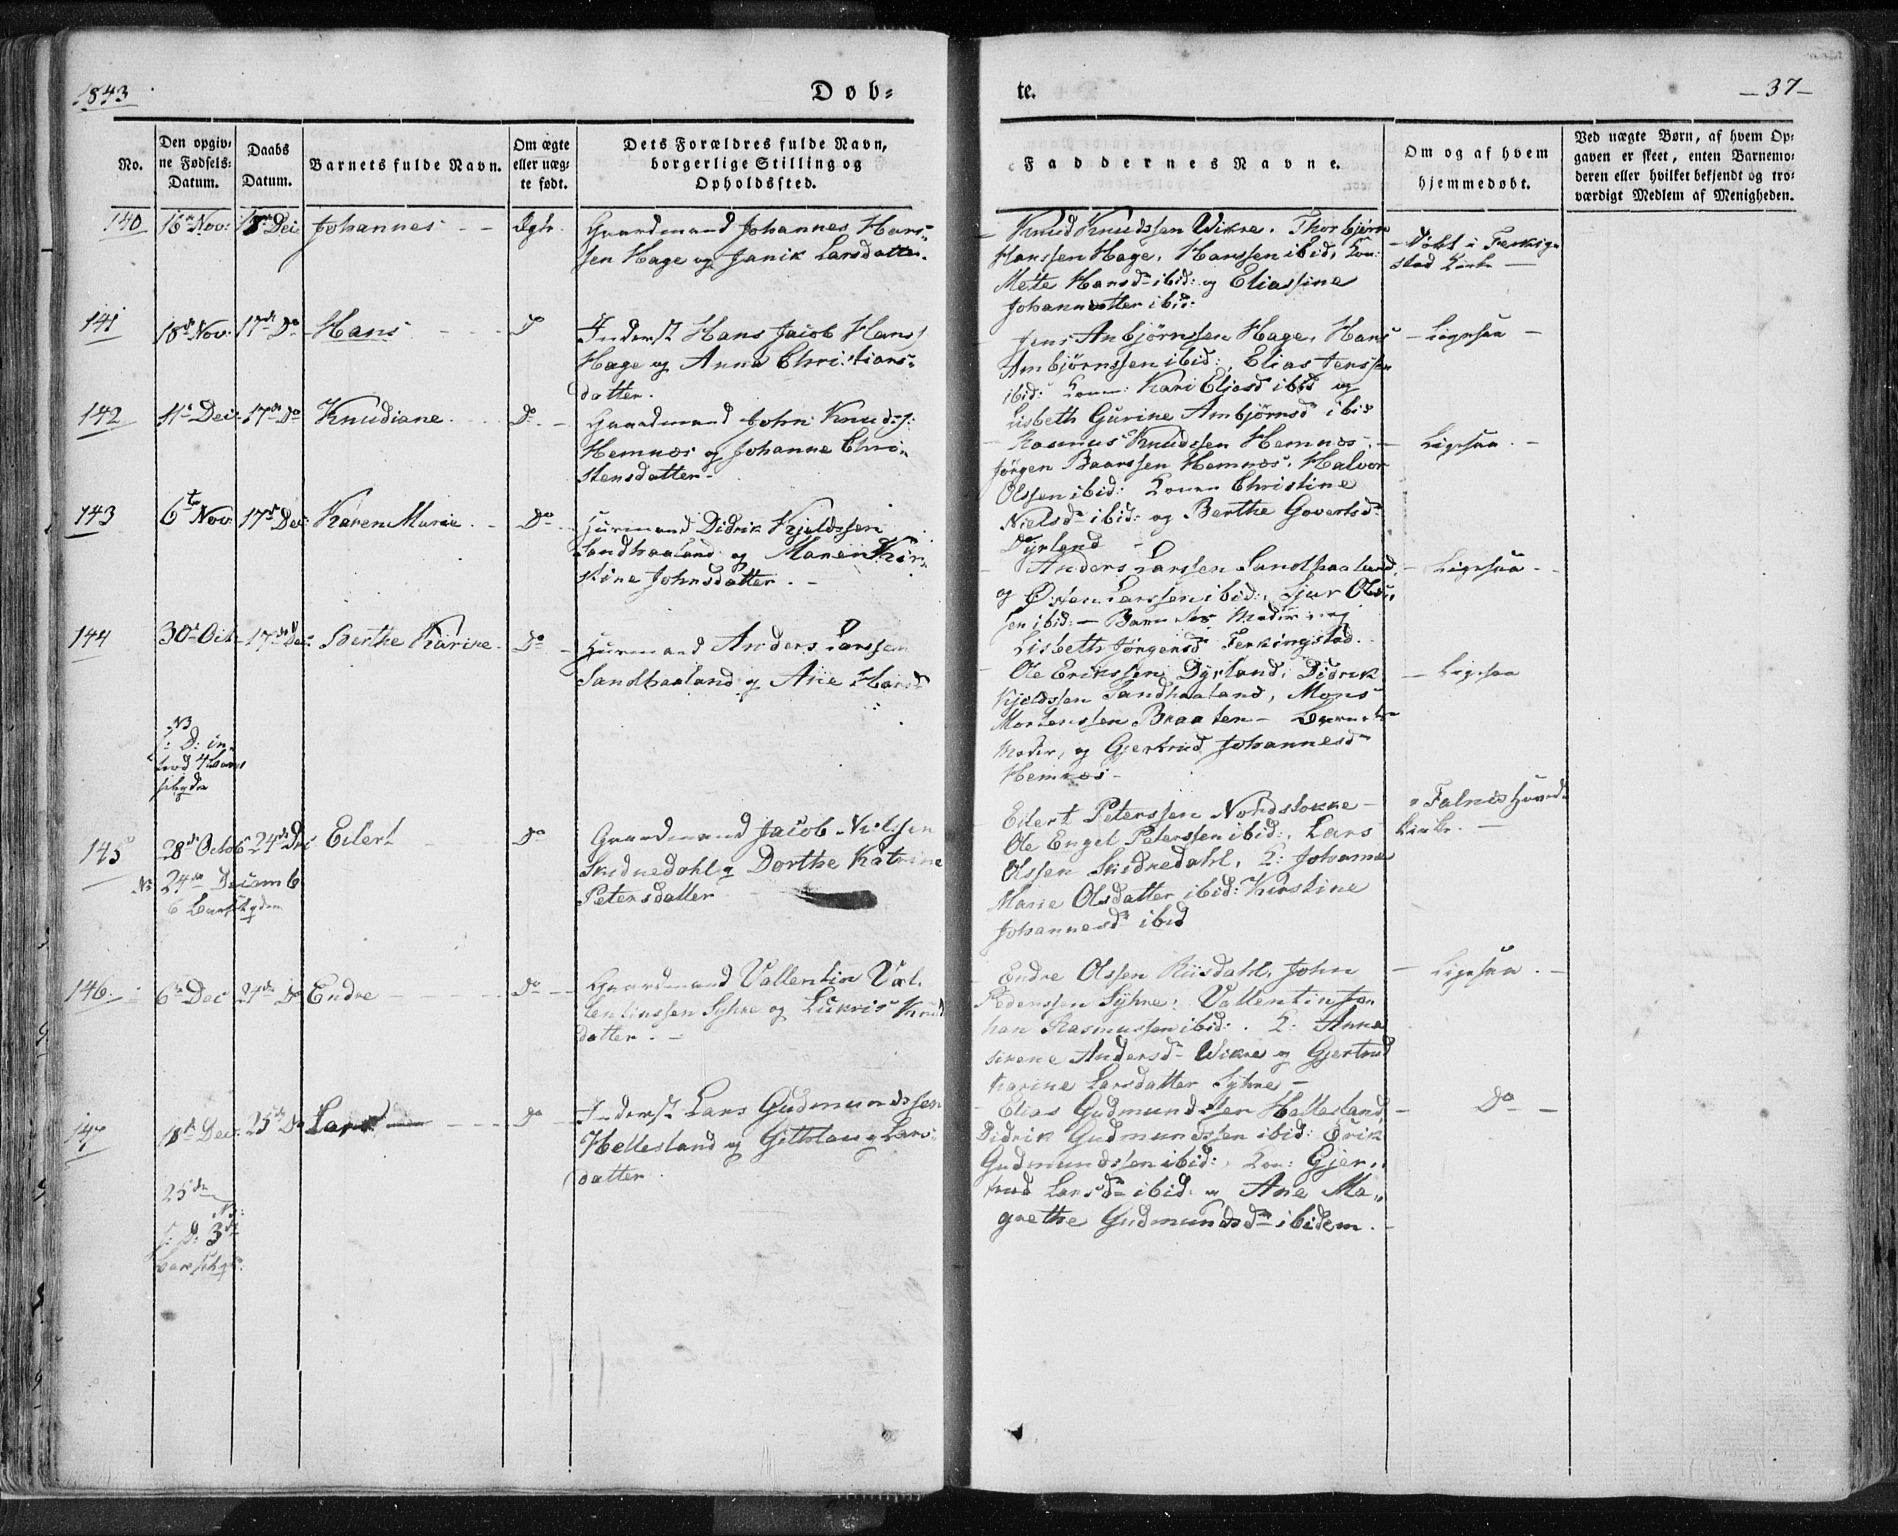 1843
Døb-
te.
-37-
No.
Den opgiv-
ne Fødsels-
Datum.
Daabs
Datum.
Barnets fulde Navn.
Om ægte
eller uæg-
te født.
Dets Forældres fulde Navn,
borgerlige Stilling og
Opholdssted.
Faddernes Navne.
Om og af hvem
hjemmedøbt.
Ved uægte Børn, af hvem Op-
gaven er skeet, enten Barnemo-
deren eller hvilket bekjendt og tro-
værdigt Medlem af Menigheden.
140 16de Nov: Dec Johannes
Gaardmand Johannes Hans-
sen Hage og Janik Larsdatter.
Knud Knudssen Wikre. Thorbjørn
Hanssen Hage, Hanssen ibid, Kon:
Mette Hansd ibid: og Eliassine
Johannsdatter ibid:
Døbt i Ferking-
stad Kirke
141 18de Nov: 17de Do Hans
Inderst Hans Jacob Hans
Hage og Anna Christians-
datter.
Jens Anbjørnssen Hage, Hans
Ambjørnssen ibid:, Elias Jenssen
ibid: Kari Eliasd ibid og
Lisbeth Gurine Ambjørnsd ibid
Ligesaa
142 11te Dec: 17de Do Knudiane Do
Gaardmand John Knuds:
Hemnæs og Johanne Chri-
stensdatter.
Rasmus Knudssen Hemnæs,
Jørgen Baarssen Hemnæs, Halvor
Olssen ibid: Konen Christine
Nielsd ibid: og Berthe Govertsd
Dyrland
Ligesaa
143 6te Nov: 17de Dec: Karen Marie Do
Huusmand Didrik Kjeldssen
Sandhaaland og Maren Kir-
stine Johnsdatter.
Anders Larssen Sandhaaland,
og Østen Larssen ibid:, Sjur Ols-
sen ibid: - Barnets Moder og
Lisbeth Jørgensd Ferkingstad.
Ligesaa
144 30te Oct 17de Dec: Berthe Karine Do
Huusmand Anders Larssen
Sandhaaland og Ane Hansd
Ole Erikssen Dyrland, Didrik
Kjeldssen Sandhaaland, Mons
Mortenssen Braaten - Barnets
Moder, og Gjertrud Johannesd
Hemnæs
Ligesaa
NB
145 28de Octob 24de Dec Eilert Do
24de Decemb
Gaardmand Jacob Nielssen
Skudnedahl og Dorthe Katrine
Petersdatter
Eilert Peterssen Nordstokke
Ole Engel Peterssen ibid:, Lars
Olssen Skudnedahl, K: Johanna
Marie Olsdatter ibid: Kirstine
Johannesd ibid
i Falnæs Hoved-
Kirke.
146 6te Dec 24de Do Endre Do
Gaardmand Vallentin Val-
lentinssen Syhre og Lukris Knud
datter.
Endre Olssen Riisdahl, John
Pederssen Syhre, Vallentin Jo-
han Rasmussen ibid:. K: Anna
Andersd Wikre og Gjertrud
Karine Larsdatter Syhre
Ligesaa
147 18de Dec: 25de Do Lars Do
25de
NB:
Inderst Lars Gudmundssen
Hellesland og Gitlaug Lars-
datter
Elias Gudmundssen Hellesland,
Didrik Gudmundssen ibid: Erik
Gudmundssen ibid:, Kon: Gjer-
trud Larsd ibid: og Ane Ma-
grethe Gudmundsd ibidem.
Do